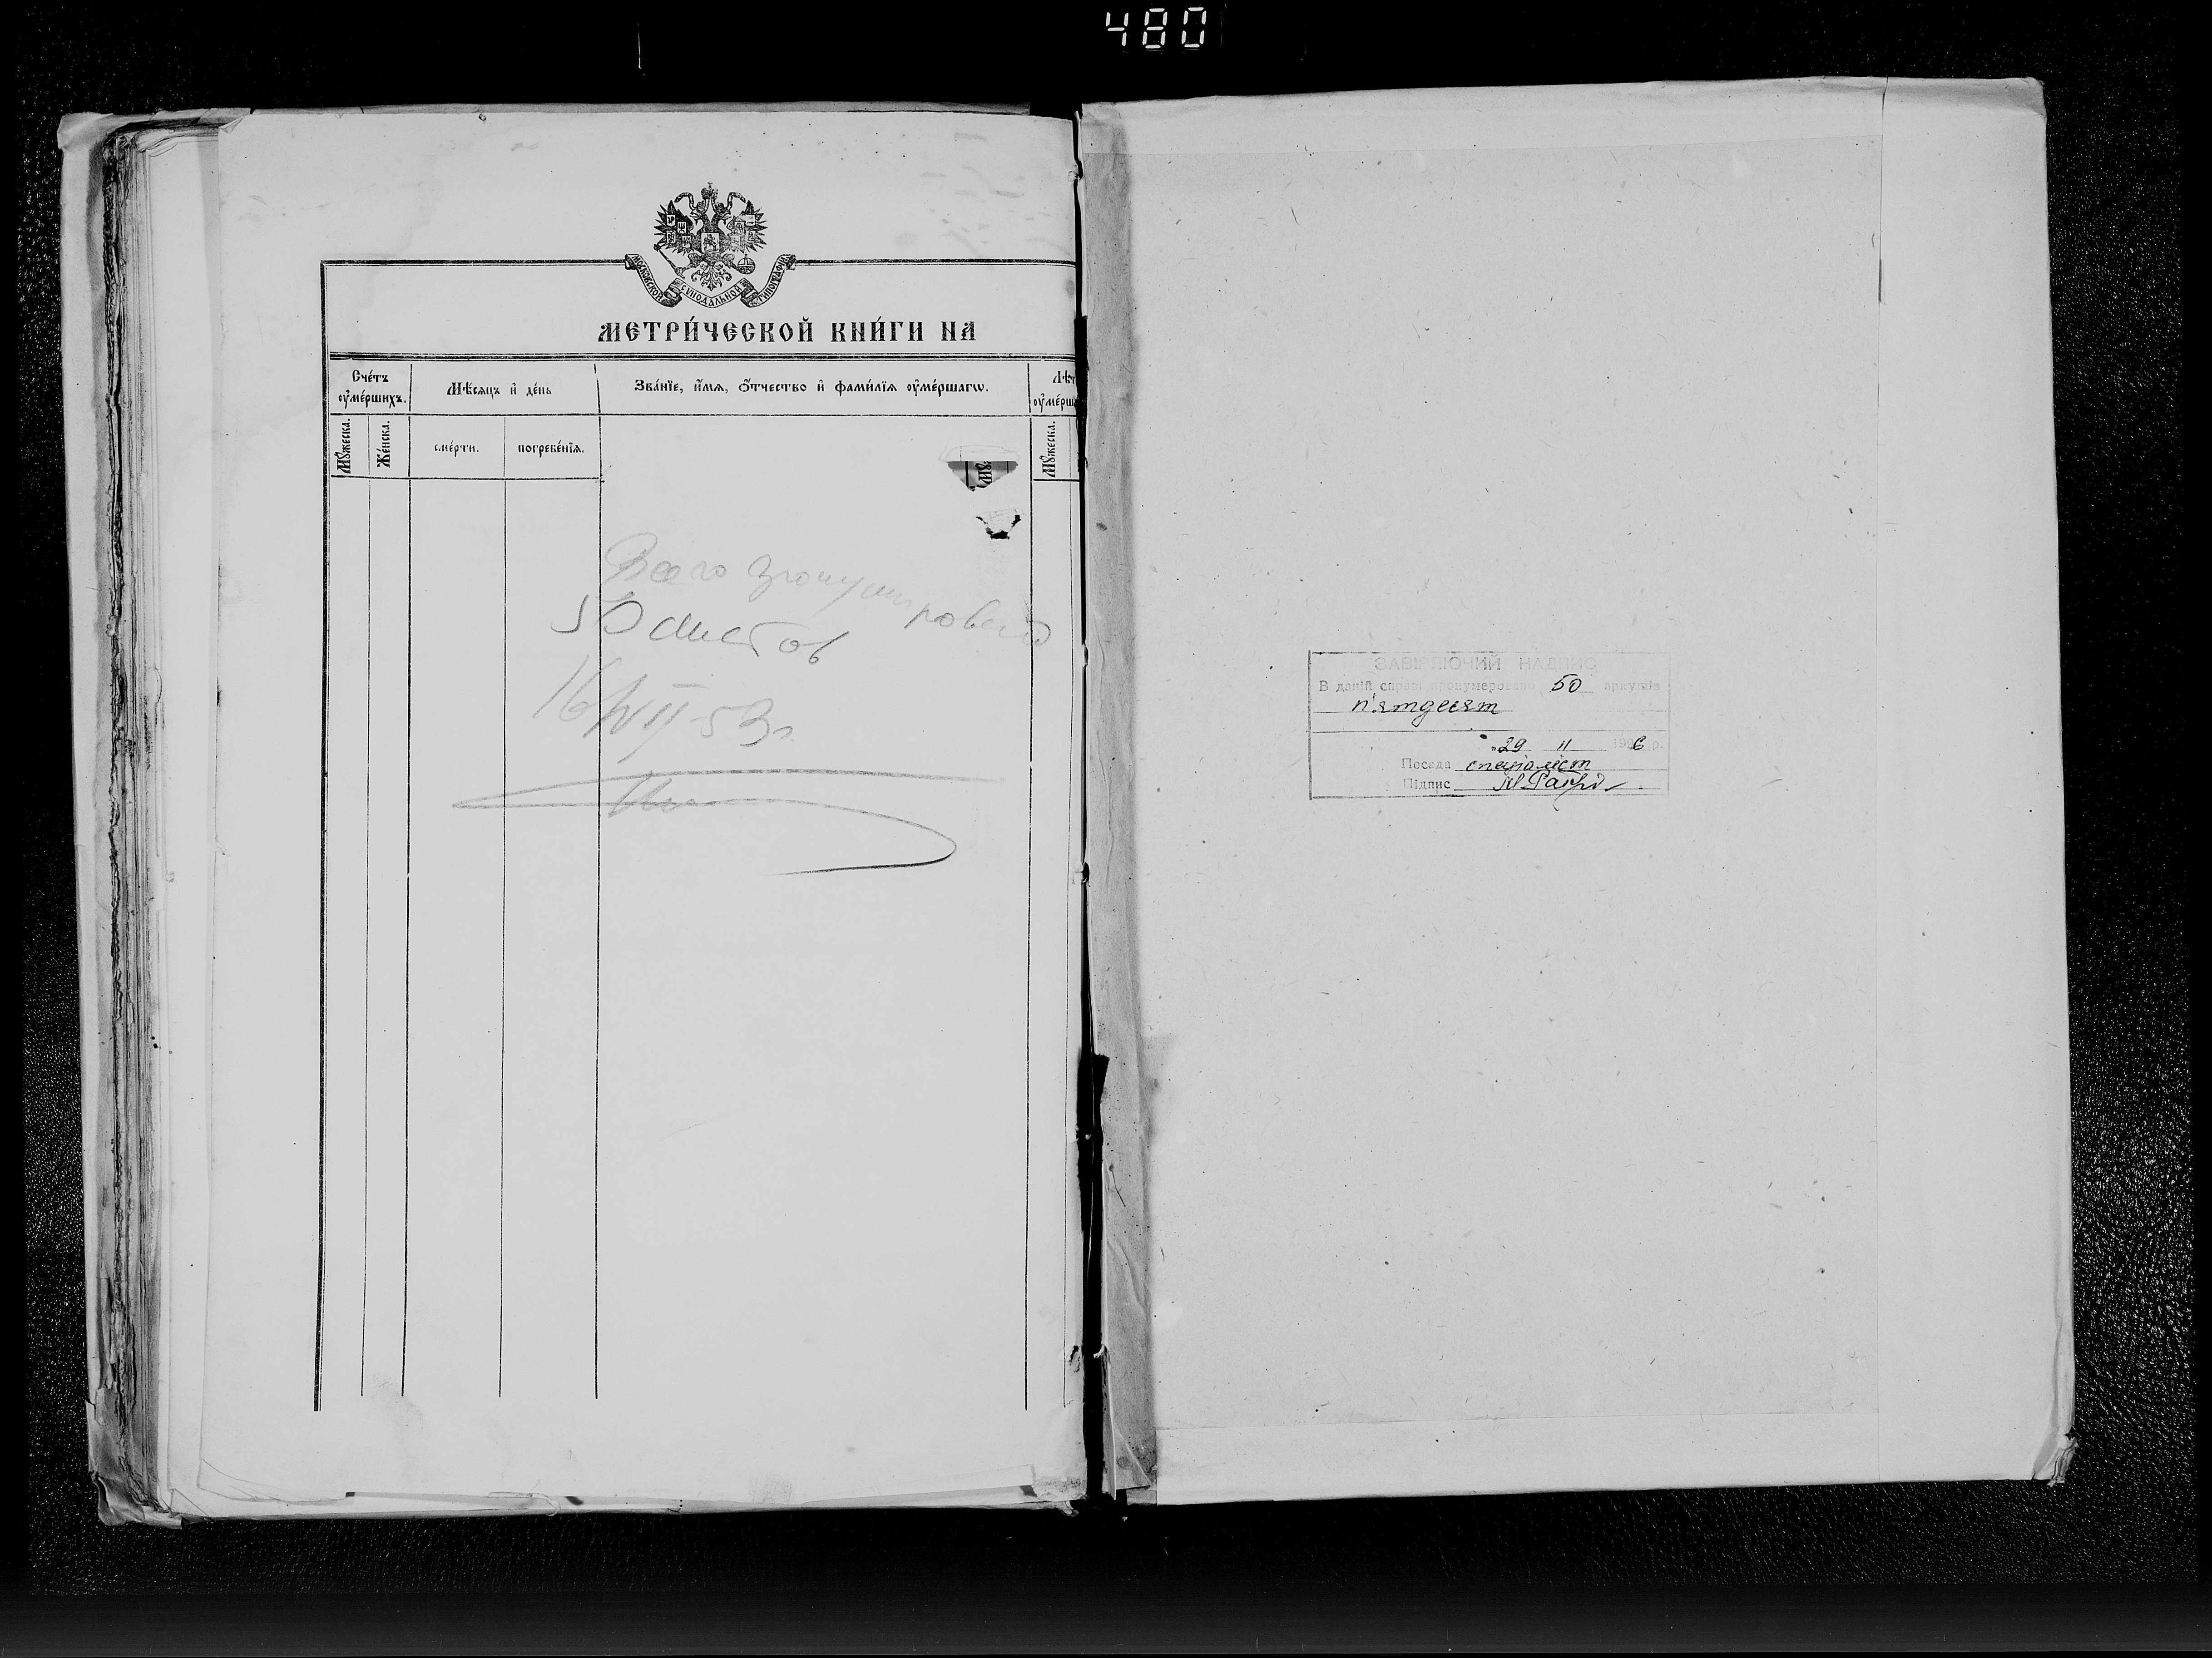 480
МОСКОВСКОЙ СУНОДАЛЬНОЙ ТИПОГРАФИИ
МЕТРИ́ЧЕСКОЙ КНИ́ГИ НА
Сче́тъ ᲂу҆ме́ршихъ.
Мѣ́сяцъ и҆ де́нь
Зва́нїе, и҆́мѧ, ѻ҆́тчество и҆ фами́лїѧ ᲂу҆ме́ршагѡ.
Лѣт
ᲂу҆ме́рш
Мꙋ́жеска.
Же́нска.
сме́рти.
погребе́нїѧ.
Мꙋ́жеска.
Всего пронумеровано
50 листов
16/VII-53г.
ЗАВІРЯЮЧИЙ НАДПИС
В даній справі пронумеровано 50 аркушів
п'ятдесят
"29 11 1996 р.
Посада спеціаліст
Підпис